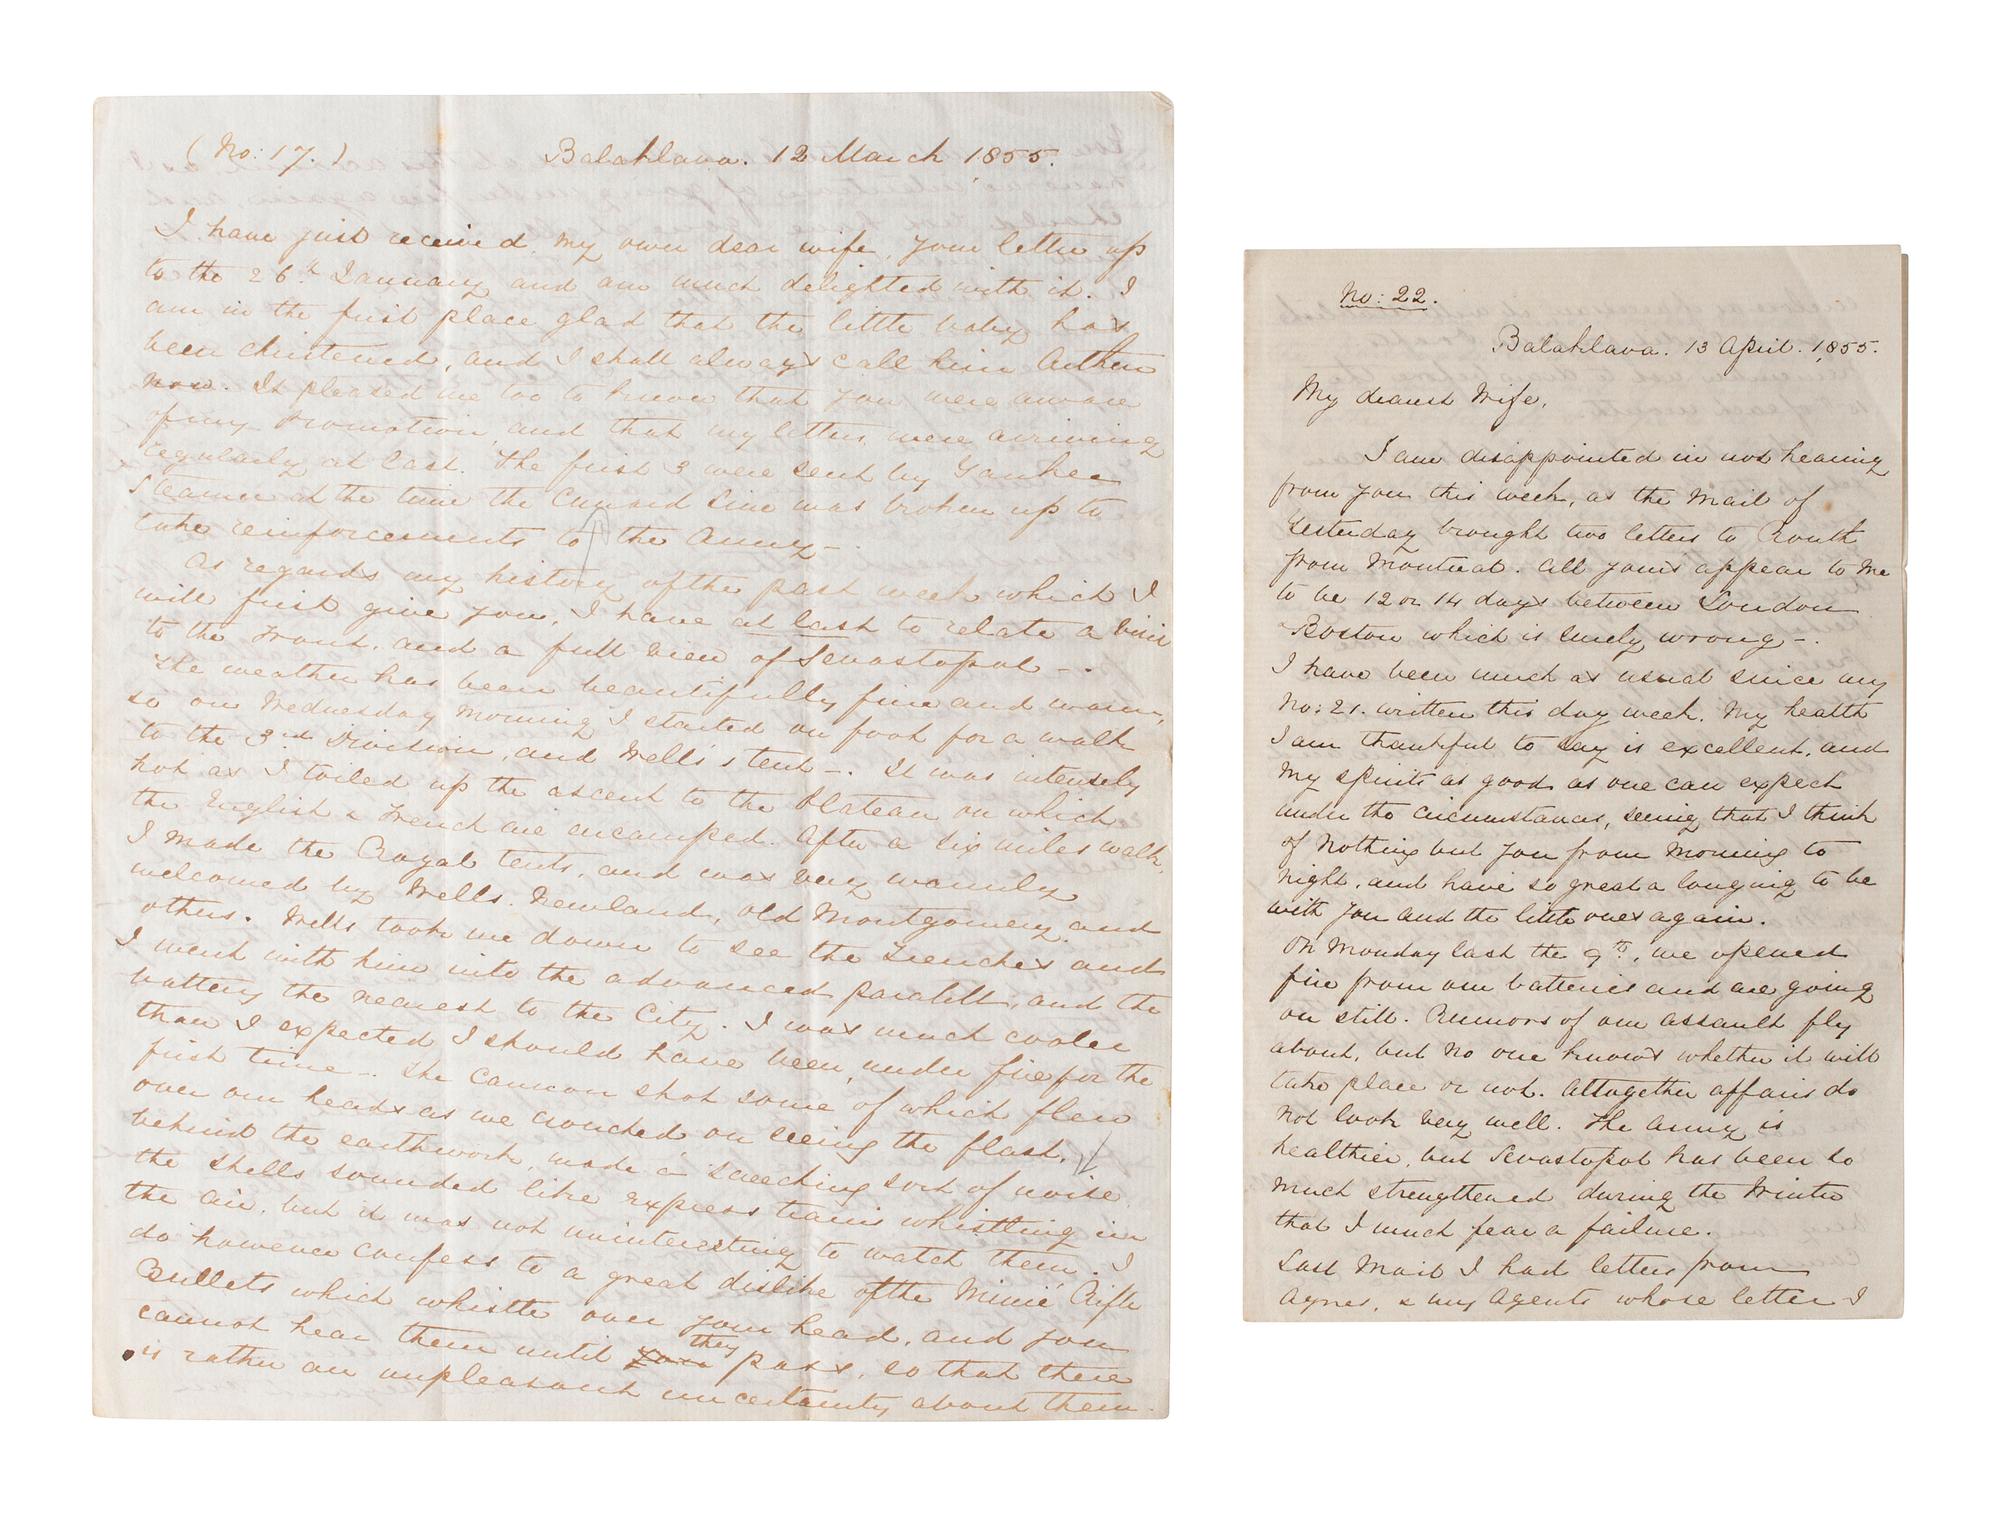 (No: 17.)
Balaklava. 12 March 1855.
I have just received, my own dear wife, your letter up
to the 26th January and am much delighted with it. I
am in the first place glad that the little baby has
been christened, and I shall always call him Arthur
now. It pleased me too to know that you were aware
of my promotion, and that my letters were arriving
regularly at last. The first 3 were sent by Yankee
Steamer at the time the Cunard Line was broken up to
take reinforcements to the Army –
As regards my history of the past week which I
will first give you, I have at last to relate a visit
to the Front, and a full view of Sevastopol –.
The weather has been beautifully fine and warm,
so on Wednesday morning I started on foot for a walk
to the 3rd Division, and Wells's tent –. It was intensely
hot as I toiled up the ascent to the Plateau on which
the English & French are encamped. After a six miles walk,
I made the Royal tents, and was very warmly
welcomed by Wells. Newland, old Montgomery and
others. Wells took me down to see the Trenches and
I went with him into the advanced parallel, and the
battery the nearest to the City. I was much cooler
than I expected I should have been, under fire for the
first time –. The cannon shot some of which flew
over our heads as we crouched on seeing the flash,
behind the earthwork, made a screeching sort of noise
the shells sounded like express trains whistling in
the air, but it was not uninteresting to watch them. I
do however confess to a great dislike of the Minié Rifle
Bullets which whistle over your head, and you
cannot hear them until they pass, so that there
is rather an unpleasant uncertainty about them.
No: 22.
Balaklava. 13 April. 1855.
My dearest Wife,
I am disappointed in not hearing
from you this week, as the Mail of
Yesterday brought two letters to Routh
from Montreal. All yours appear to me
to be 12 or 14 days between London
Boston which is surely wrong –.
I have been much as usual since my
No: 21. written this day week. My health
I am thankful to say is excellent, and
my spirits as good as one can expect
under the circumstances, seeing that I think
of nothing but you from morning to
night, and have so great a longing to be
with you and the little ones again.
On Monday last the 9th, we opened
fire from our batteries and are going
on still. Rumors of our assault fly
about, but no one knows whether it will
take place or not. Altogether affairs do
not look very well. The Army is
healthier, but Sevastopol has been so
much strengthened during the Winter
that I much fear a failure.
Last Mail I had letters from
Agnes, & my Agents whose letter I